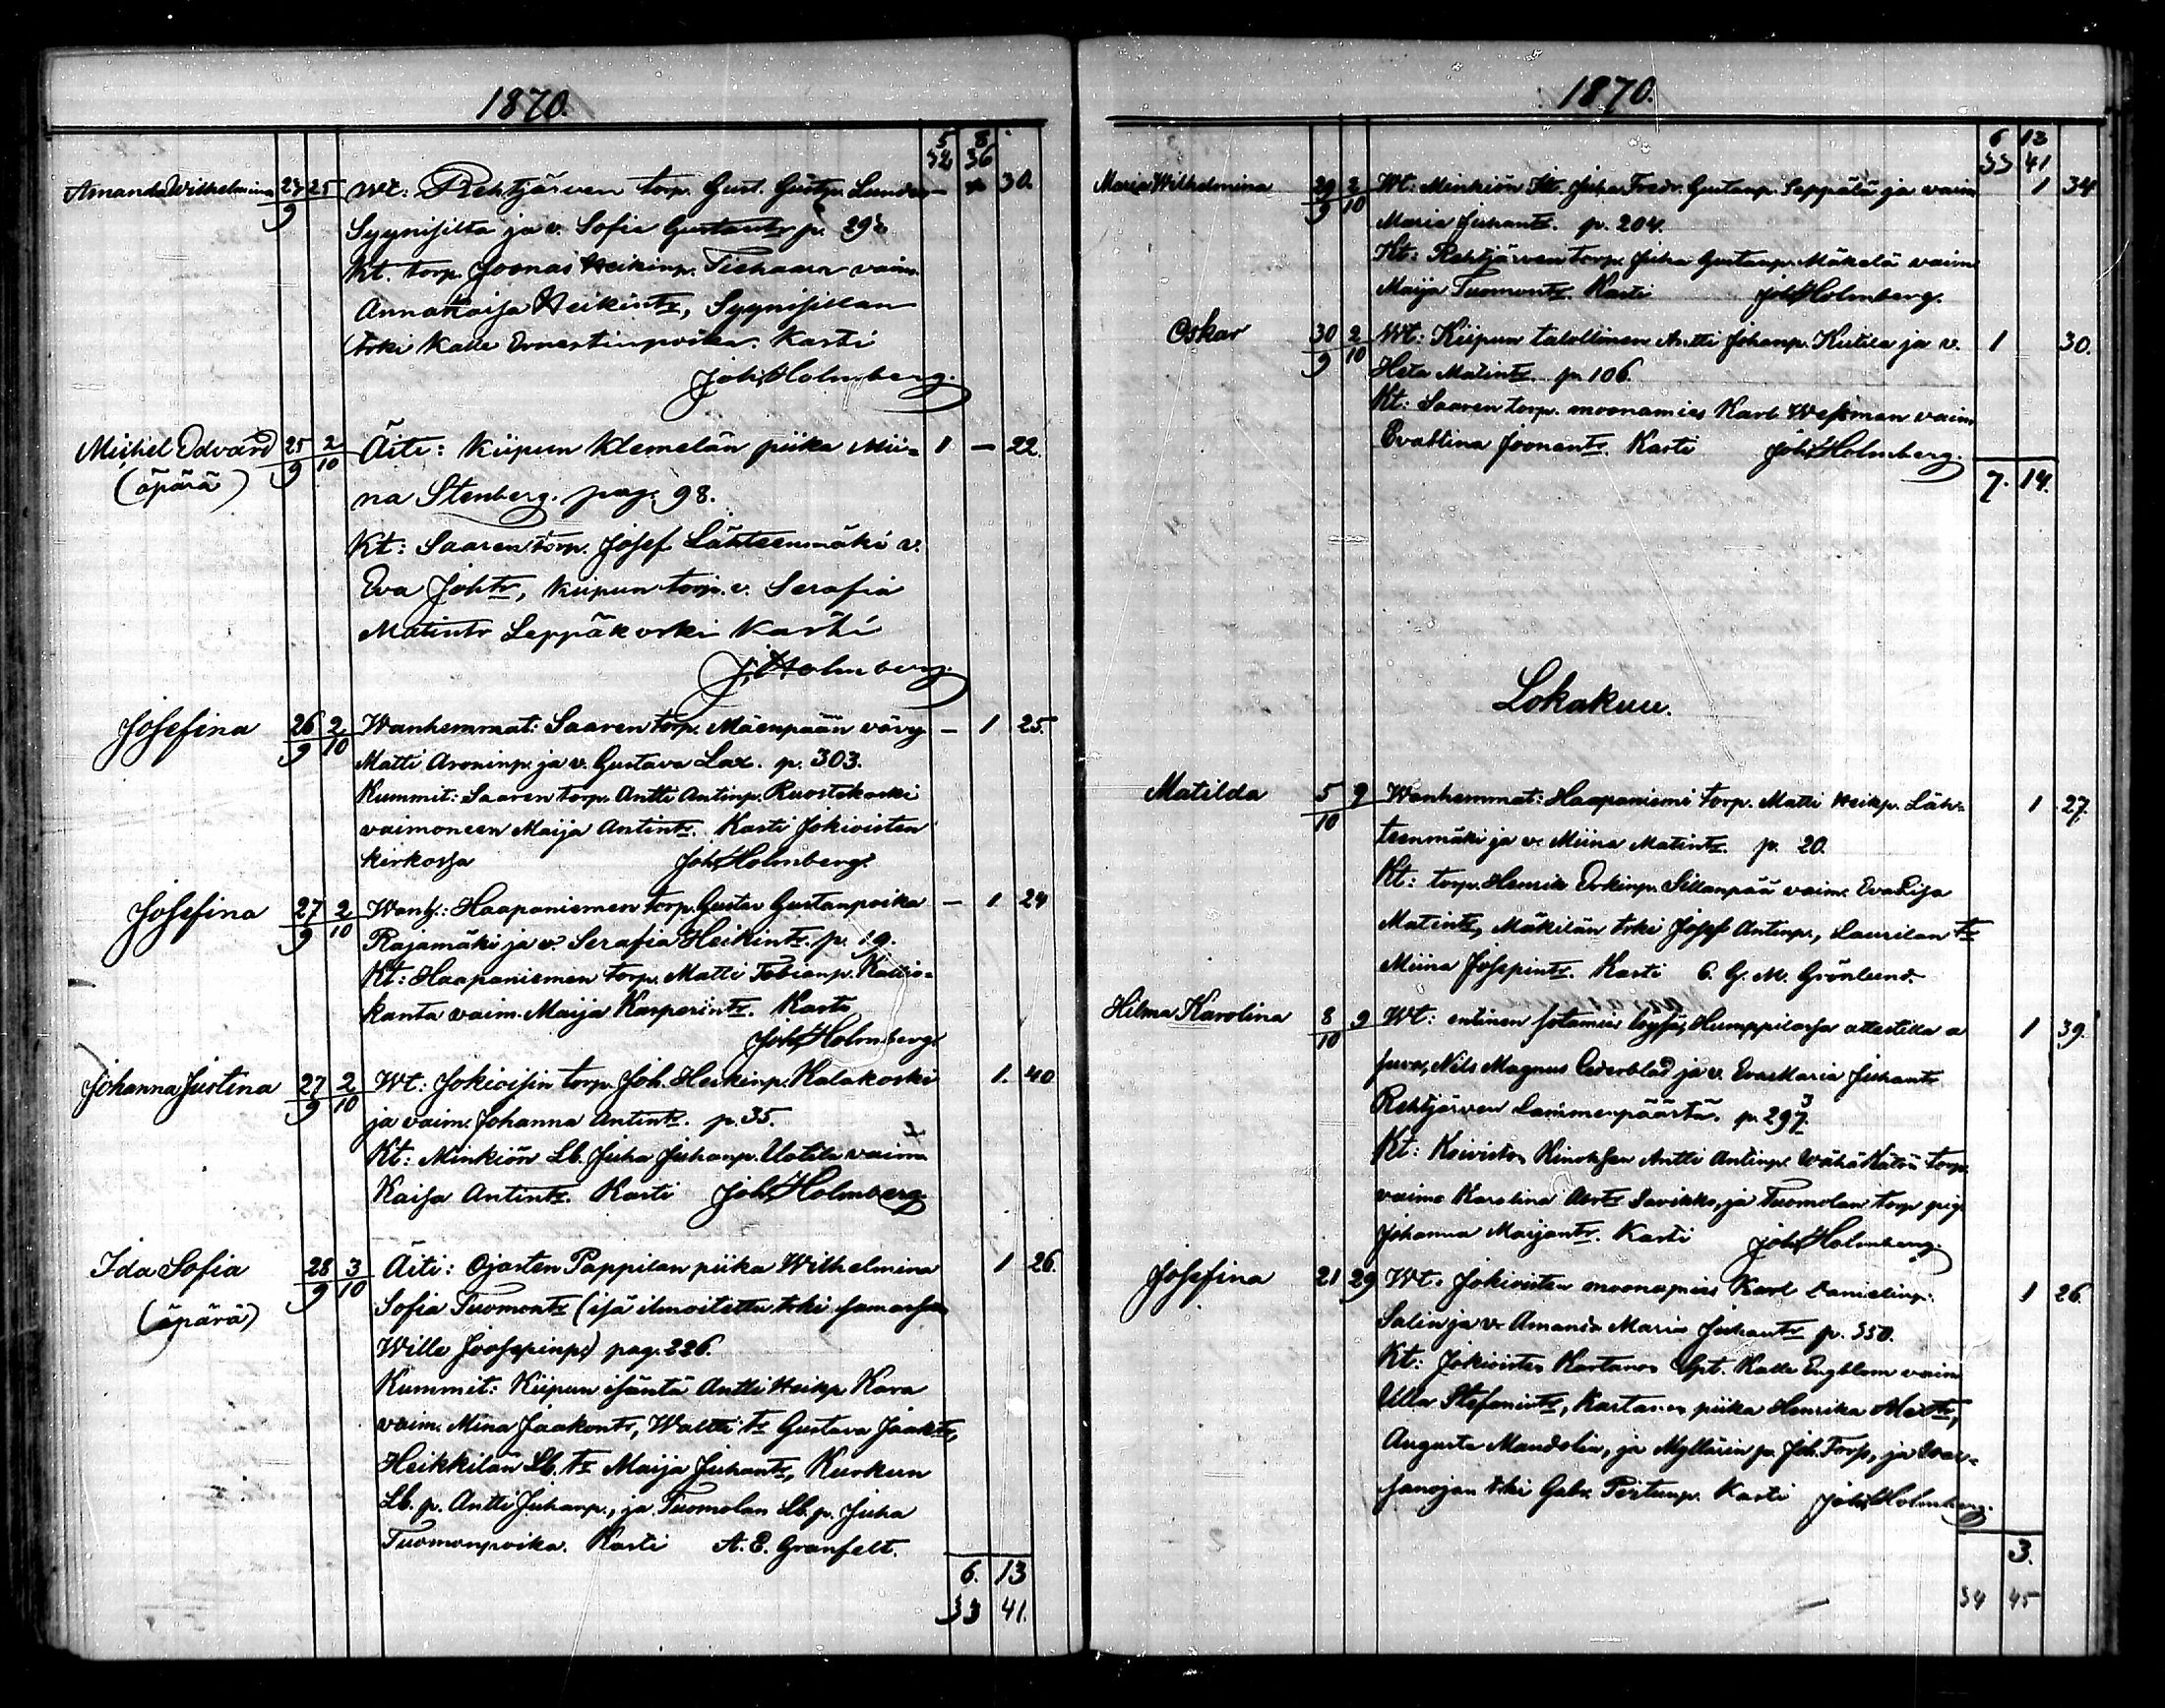 1870.
5 8
32 36
Amanda Wilhelmina 23/9 25 Wt: Rehtjärven torp. Gust. Gustp. Lunden — 30.
Syynisilta ja v. Sofia Gustantr p. 292
Kt. torp. Joonas Heikinp. Tiehaara vaim.
Anna Kaisa Heikintr, Syynisillan
trki Kalle Ernestinpoika. Kasti
Joh. Holmberg.
Michel Edvard 25/9 2/10 Äiti: Kiipun Klemelän piika Mii- 1 — 22.
(äpärä) na Stenberg. pag. 98.
Kt: Saaren torp. Josef Lähteenmäki v.
Eva Johtr, Kiipun torp. v. Serafia
Matintr Leppäkoski Kasti
J. Holmberg.
Josefina 26/9 2/10 Wanhemmat: Saaren torp. Mäenpään vävy — 1 25.
Matti Aroninp. ja v. Gustava Lax. p. 303.
Kummit: Saaren torp. Antti Antinp. Ruostekoski
vaimoneen Maija Antintr. Kasti Jokioisten
kirkossa Joh. Holmberg.
Josefina 27/9 2/10 Wanh.: Haapaniemen torp. Gustav Gustanpoika — 1 24
Rajamäki ja v. Serafia Heikintr. p. 19.
Kt: Haapaniemen torp. Matti Tobianp. Kallio-
kanta vaim. Maija Kasperintr. Kasti
Joh. Holmberg.
Johanna Justina 27/9 2/10 Wt: Jokioisin torp. Joh. Heikinp. Kalakoski 1. 40
ja vaim. Johanna Antintr. p. 35.
Kt: Minkiön Lb. Juha Juhanp. Uotila vaimo
Kaisa Antintr. Kasti Joh. Holmberg.
Ida Sofia 28/9 3/10 Äiti: Ojasten Pappilan piika Wilhelmina 1 26.
(äpärä) Sofia Tuomontr (isä ilmoitettu trki samassa
Wille Joosepinp.) pag. 226.
Kummit: Kiipun isäntä Antti Heikp Kara
vaim. Mina Jaakontr, Waltti tr Gustava Jaaktr,
Heikkilän Lb. tr Maija Juhantr, Kurkun
Lb. p. Antti Juhanp., ja Tuomolan Lb. p. Juha
Tuomonpoika. Kasti A. E. Granfelt.
6. 13
33 41.
1870.
6 13
33 41
Maria Wilhelmina 29/9 2/10 Wt: Minkiön Juha Fredr. Gustanp. Seppälä ja vaim 1 34
Maria Juhantr. p. 204.
Kt: Rehtjärven torp. Juha Gustanp. Mäkelä vaim
Maija Tuomontr. Kasti Joh. Holmberg.
Oskar 30/9 2/10 Wt: Kiipun talollinen Antti Johanp. Kutila ja v. 1 30.
Heta Matintr. p. 106.
Kt: Saaren torp. moonamies Karl Wessman vaim
Evastina Joonantr. Kasti Joh. Holmberg.
7. 14.
Lokakuu.
Matilda 5/10 9 Wanhemmat: Haapaniemi torp. Matti Heikp. Läh- 1 27.
teenmäki ja v. Miina Matintr. p. 20.
Kt: torp. Henrik Erkinp. Sillanpää vaim. Eva Lisa
Matintr, Mäkilän trki Josef Antinp., Laurilan tr
Miina Josepintr. Kasti C. G. M. Grönlund.
Hilma Karolina 8/10 9 Wt: entinen sotamies Humppilassa attestilla a 1 39.
suva, Nils Magnus Cederblad ja v. Eva Maria Juhantr
Rehtjärven Lammenpäästä. p. 297.
Kt: Koivisto Antti Antinp. torp.
vaimo Karolina Savikko, ja Tuomolan torp. pig.
Johanna Marjantr. Kasti Joh. Holmberg.
Josefina 21 29 Wt: Jokioisten moonamies Karl Danielinp. 1 26.
Salin ja v. Amanda Maria Juhantr p. 350.
Kt: Jokioisten Kartanos Kalle Engblom vaim
Ulla Stefanintr, Kartanos piika Henrika
Augusta Mandelin, ja Myllärin p. Joh. Torp, ja
sanojan trki Gabr. Pertunp. Kasti Joh. Holmberg.
3.
34 45